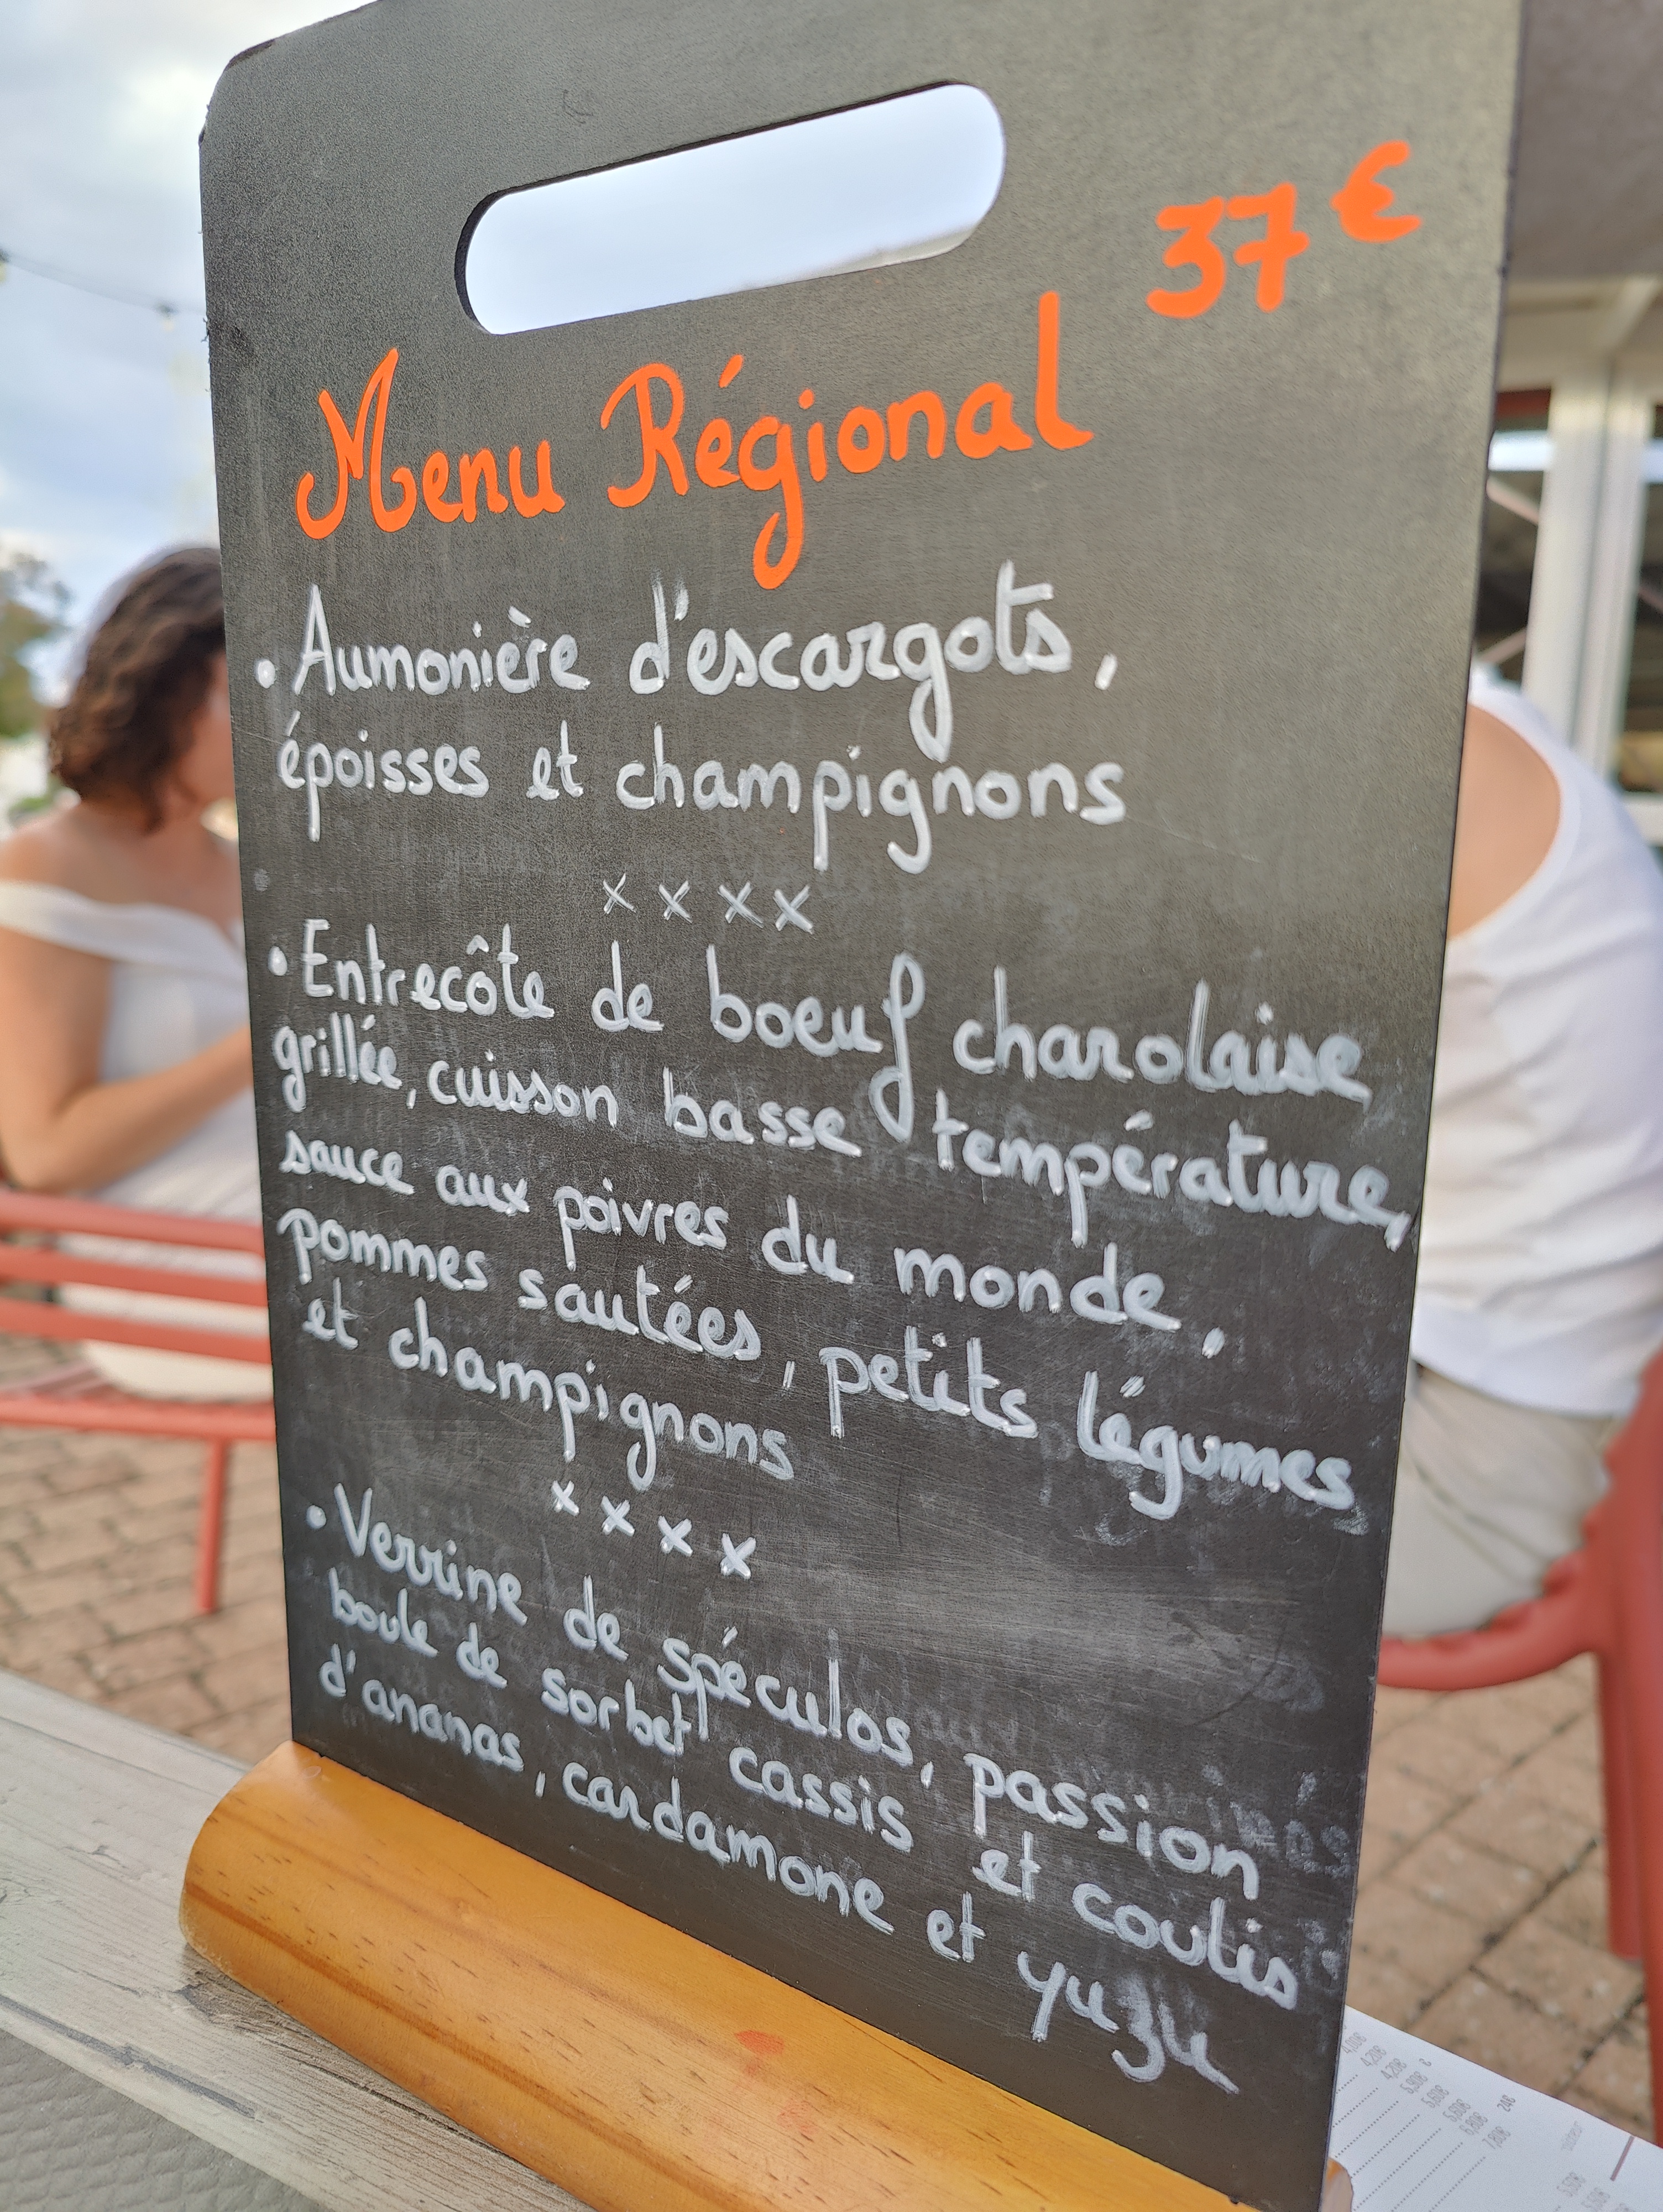 37 €
Menu Régional
• Aumonière d'escargots,
époisses et champignons
x x x x
• Entrecôte de boeuf charolaise
grillée, cuisson basse température,
sauce aux poivres du monde,
pommes sautées, petits légumes
et champignons
x x x x
• Verrine de spéculos, passion
boule de sorbet cassis et coulis
d'ananas, cardamone et yuzu